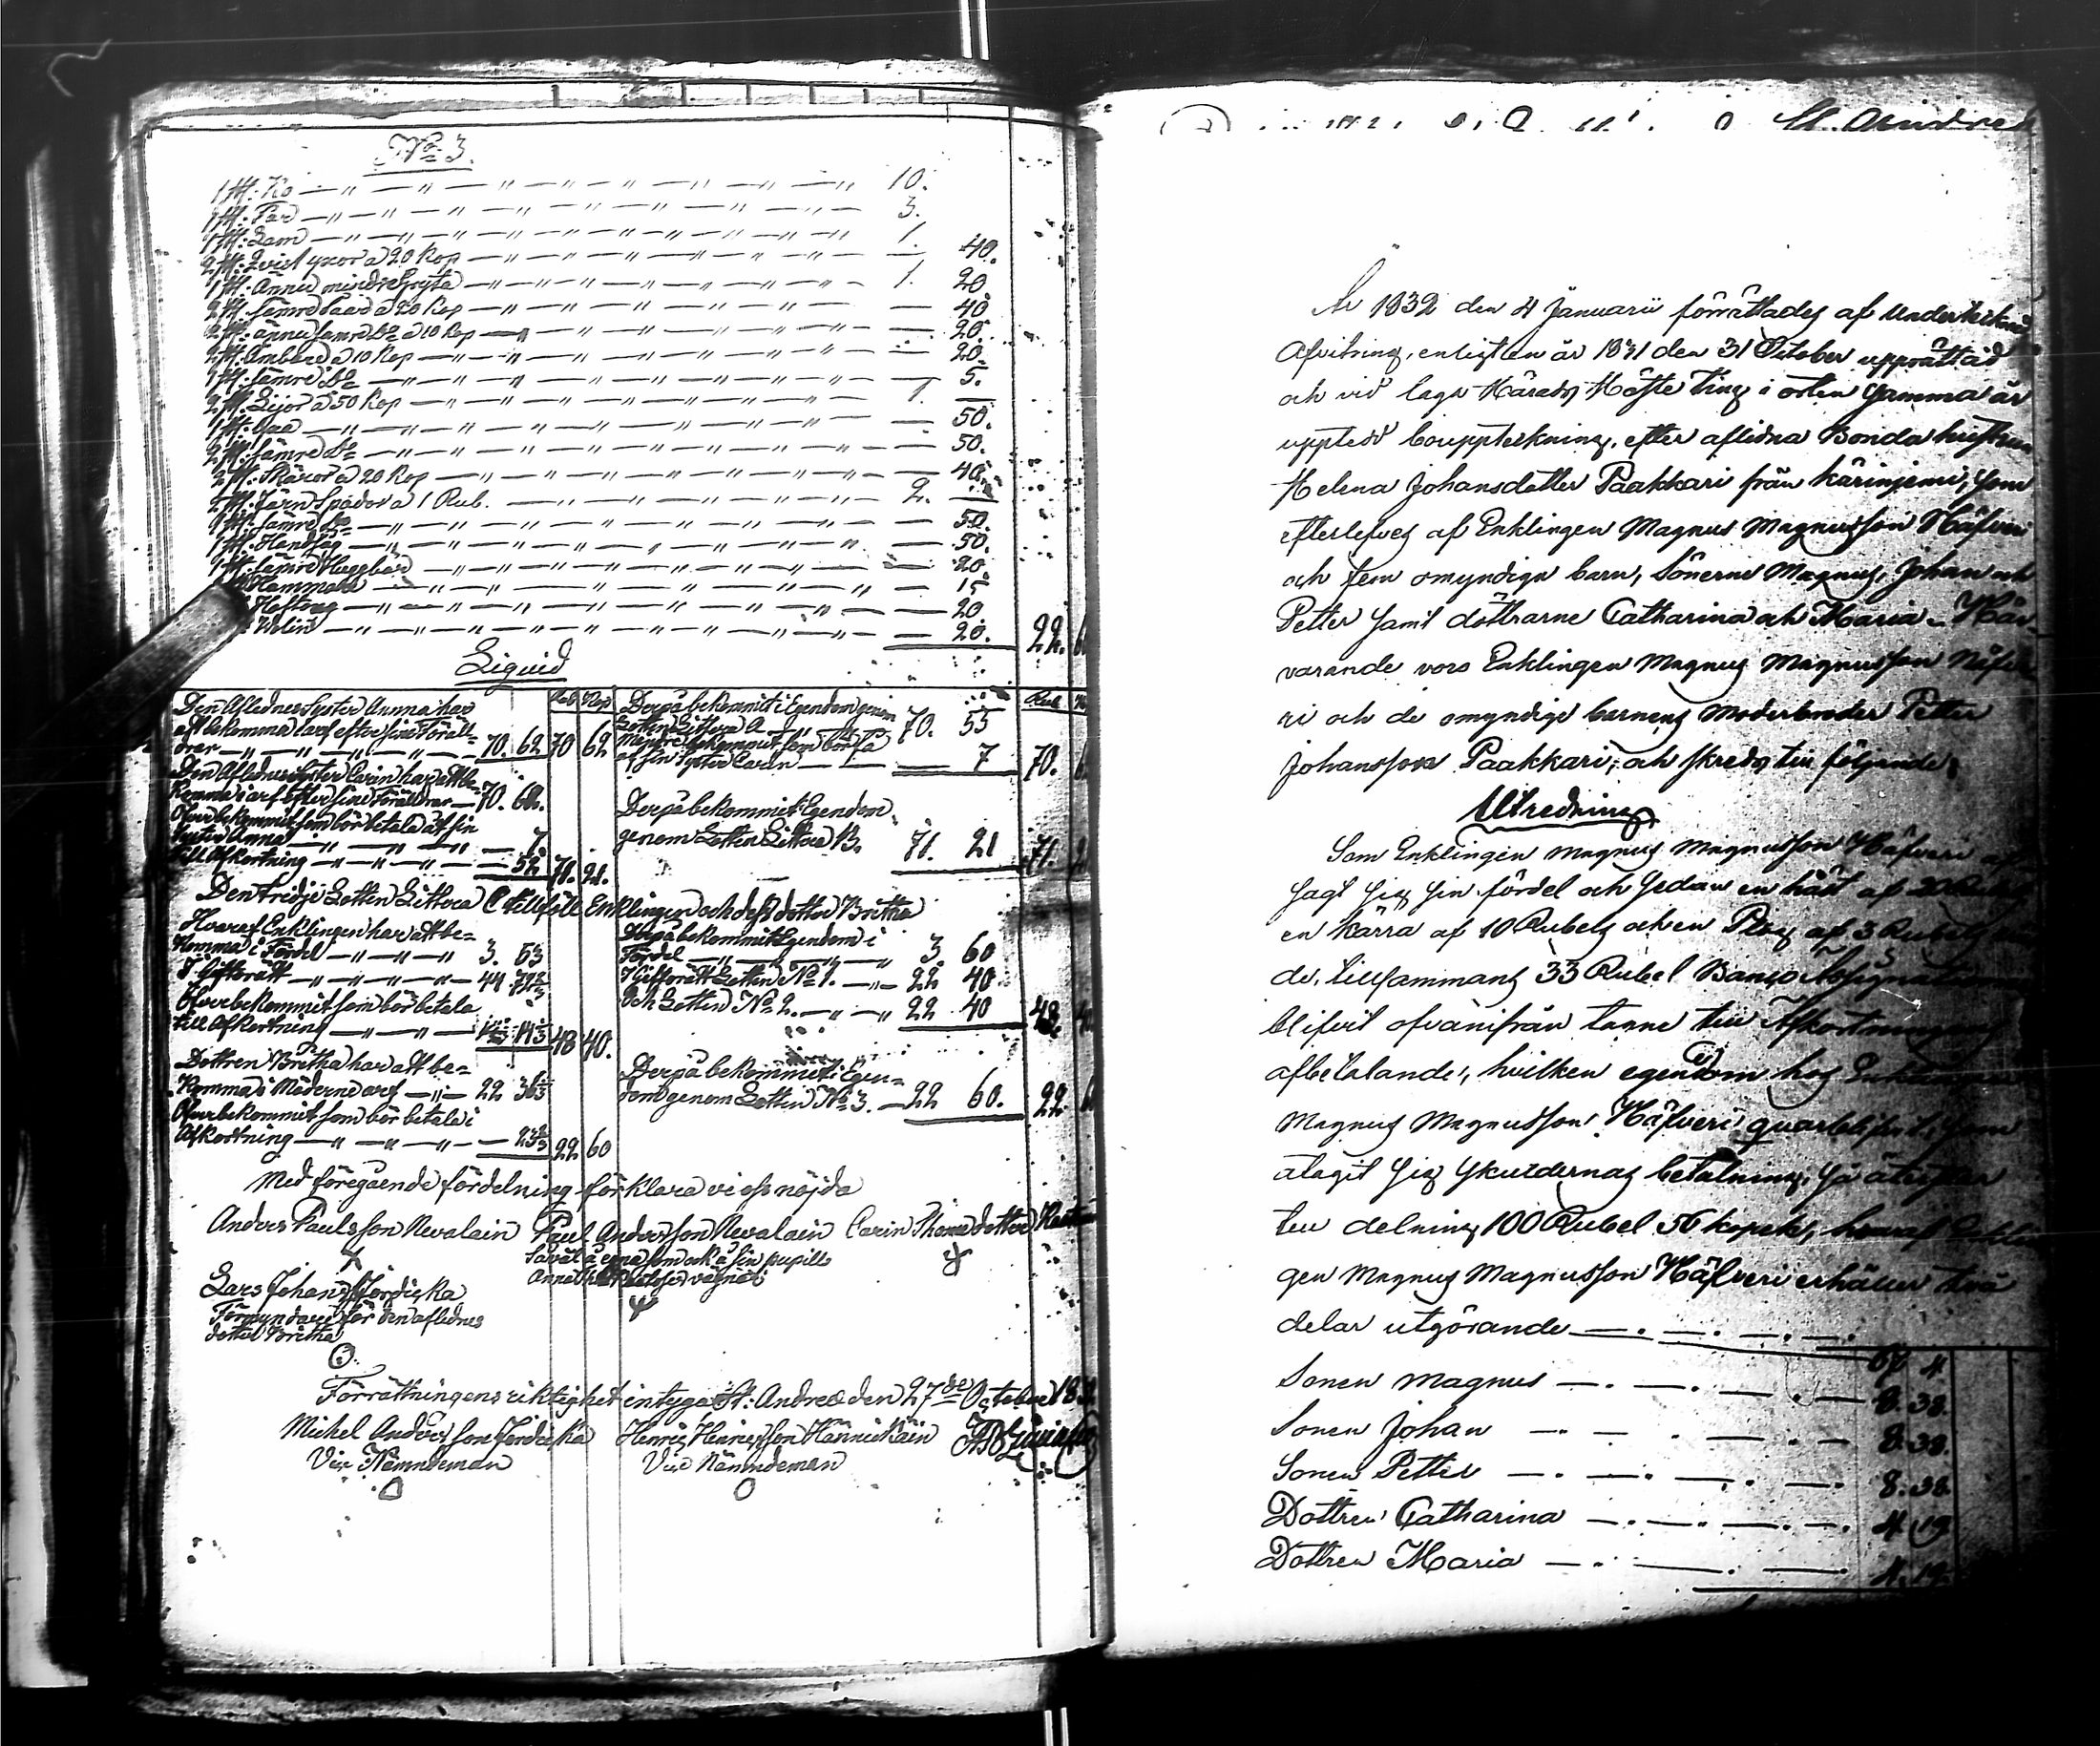 No 3.
1 st: Ko — " — " — " — 10.
1 st: Får — " — " — " — 3.
1 st: Lam — " — " — " — 1.
2 st: yxor a 20 Kop — " — " — 40.
1 st: Ännu mindre Gryta — " — " — 1. 20
2 st: sämre a 20 Kop — " — " — 40
2 st: ännu sämre Do a 10 Kop — " — " — 20.
2 st: Ämbare a 10 Kop — " — " — 20.
1 st: sämre Do — " — " — 5.
2 st: Lijor a 50 Kop — " — " — 1. —
1 st: — " — " — 50.
2 st: sämre Do — " — " — 50.
2 st: Skäror a 20 Kop — " — " — 40.
2 st: Järn Spador a 1 Rub. — " — " — 2. —
1 st: sämre Do — " — " — 50.
1 st: Handsåg — " — " — 50.
1 st: sämre — " — " — 20
Hammare — " — " — 15
— " — " — 20
— " — " — 20. 22.
Liquid
Rub Kop
Rub
Den Aflednes Syster Anna har
att bekomma i arf efter sine Föräll-
drar — " — " — 70. 62 70 62
Derpå bekommit i Egendom genom
Lotten Littera A — " — 70. 55
Mindre bekommit som bör få
af sin Syster Carin — 7 70.
Den Aflednes Syster Carin har att be-
komma i arf efter sine Föräldrar — 70. 62.
Öfver bekommit som bör betala åt sin
Syster Anna — " — " — 7.
till Afkortning — " — " — 52 71. 21.
Derpå bekommit Egendom
genom Lotten Littera B. 71. 21 71.
Den tredje Lotten Littera C tillföll Enklingen och dess dotter Britha
Hvaraf Enklingen har att be-
komma i Fördel — " — " — 3. 53
I Giftorätt — " — " — 44 72 2/3
Öfver bekommit som bör betala
till Afkortning — " — " — 14 1/3 48 40.
Derpå bekommit Egendom i
Fördel — " — " — 3. 60
I Giftorätt Lotten No 1. — " — 22 40
och Lotten No 2. — " — " 22 40 48
Dottren Britha har att be-
komma i Möderne arf — " — 22 36 1/3
Öfver bekommit som bör betala i
Afkortning — " — " — 23 2/3 22 60
Derpå bekommit i Egen-
dom genom Lotten No 3. — 22 60. 22
Med föregående fördelning förklara vi oss nöjda
Anders Paulsson Nevalain Paul Andersson Nevalain Carin Thomedotter
Såväl å egna som ock å sin pupills
vägnar
Lars Johansson Jordiska
Förmyndare för den aflednes
dotter Britha
Förrättningens riktighet intyga St: Andreæ den 27de October
Michel Andersson Jordiska Henric Henricsson Hännikäin
Vice Nämndeman Vice Nämndeman
St. Andreæ
År 1832 den 4 Januarii förrättades af Undertecknad
Afvitring, enligt en år 1831 den 31 October upprättad
och vid laga Härads Höste Ting i orten samma år
uppteed bouppteckning, efter aflidna Bonda hustrun
Helena Johansdotter Paakkari från Kärinjemi, som
efterlefves af Enklingen Magnus Magnusson Häfveri
och fem omyndiga barn, Sönerne Magnus, Johan och
Petter samt döttrarne Catharina och Maria. Här-
varande voro Enklingen Magnus Magnusson Häfve-
ri och de omyndige barnens Moderbroder Petter
Johansson Paakkari; och skreds till följande
Utredning
Som Enklingen Magnus Magnusson Häfveri
tagit sig sin fördel och sedan en häst af 20 Rubel
en Kärra af 10 Rubels och en Plog af 3 Rubels
de, tillsammans 33 Rubel Banco Assignationer
blifvit ofvanifrån tagne till Afkortning
afbetalande, hvilken egendom hos Enklingen
Magnus Magnusson Häfveri qvarblifvit, som
åtagit sig skuldernas betalning; så återstår
till delning 100 Rubel 56 kopek, hvaraf Enklin-
gen Magnus Magnusson Häfveri erhåller två
delar utgörande — . — . — . 67 4
Sonen Magnus — . — . — . 8. 38.
Sonen Johan — . — . — . 8. 38.
Sonen Petter — . — . — . 8. 38.
Dottren Catharina — . — . — . 4. 19
Dottren Maria — . — . — . 4. 19.